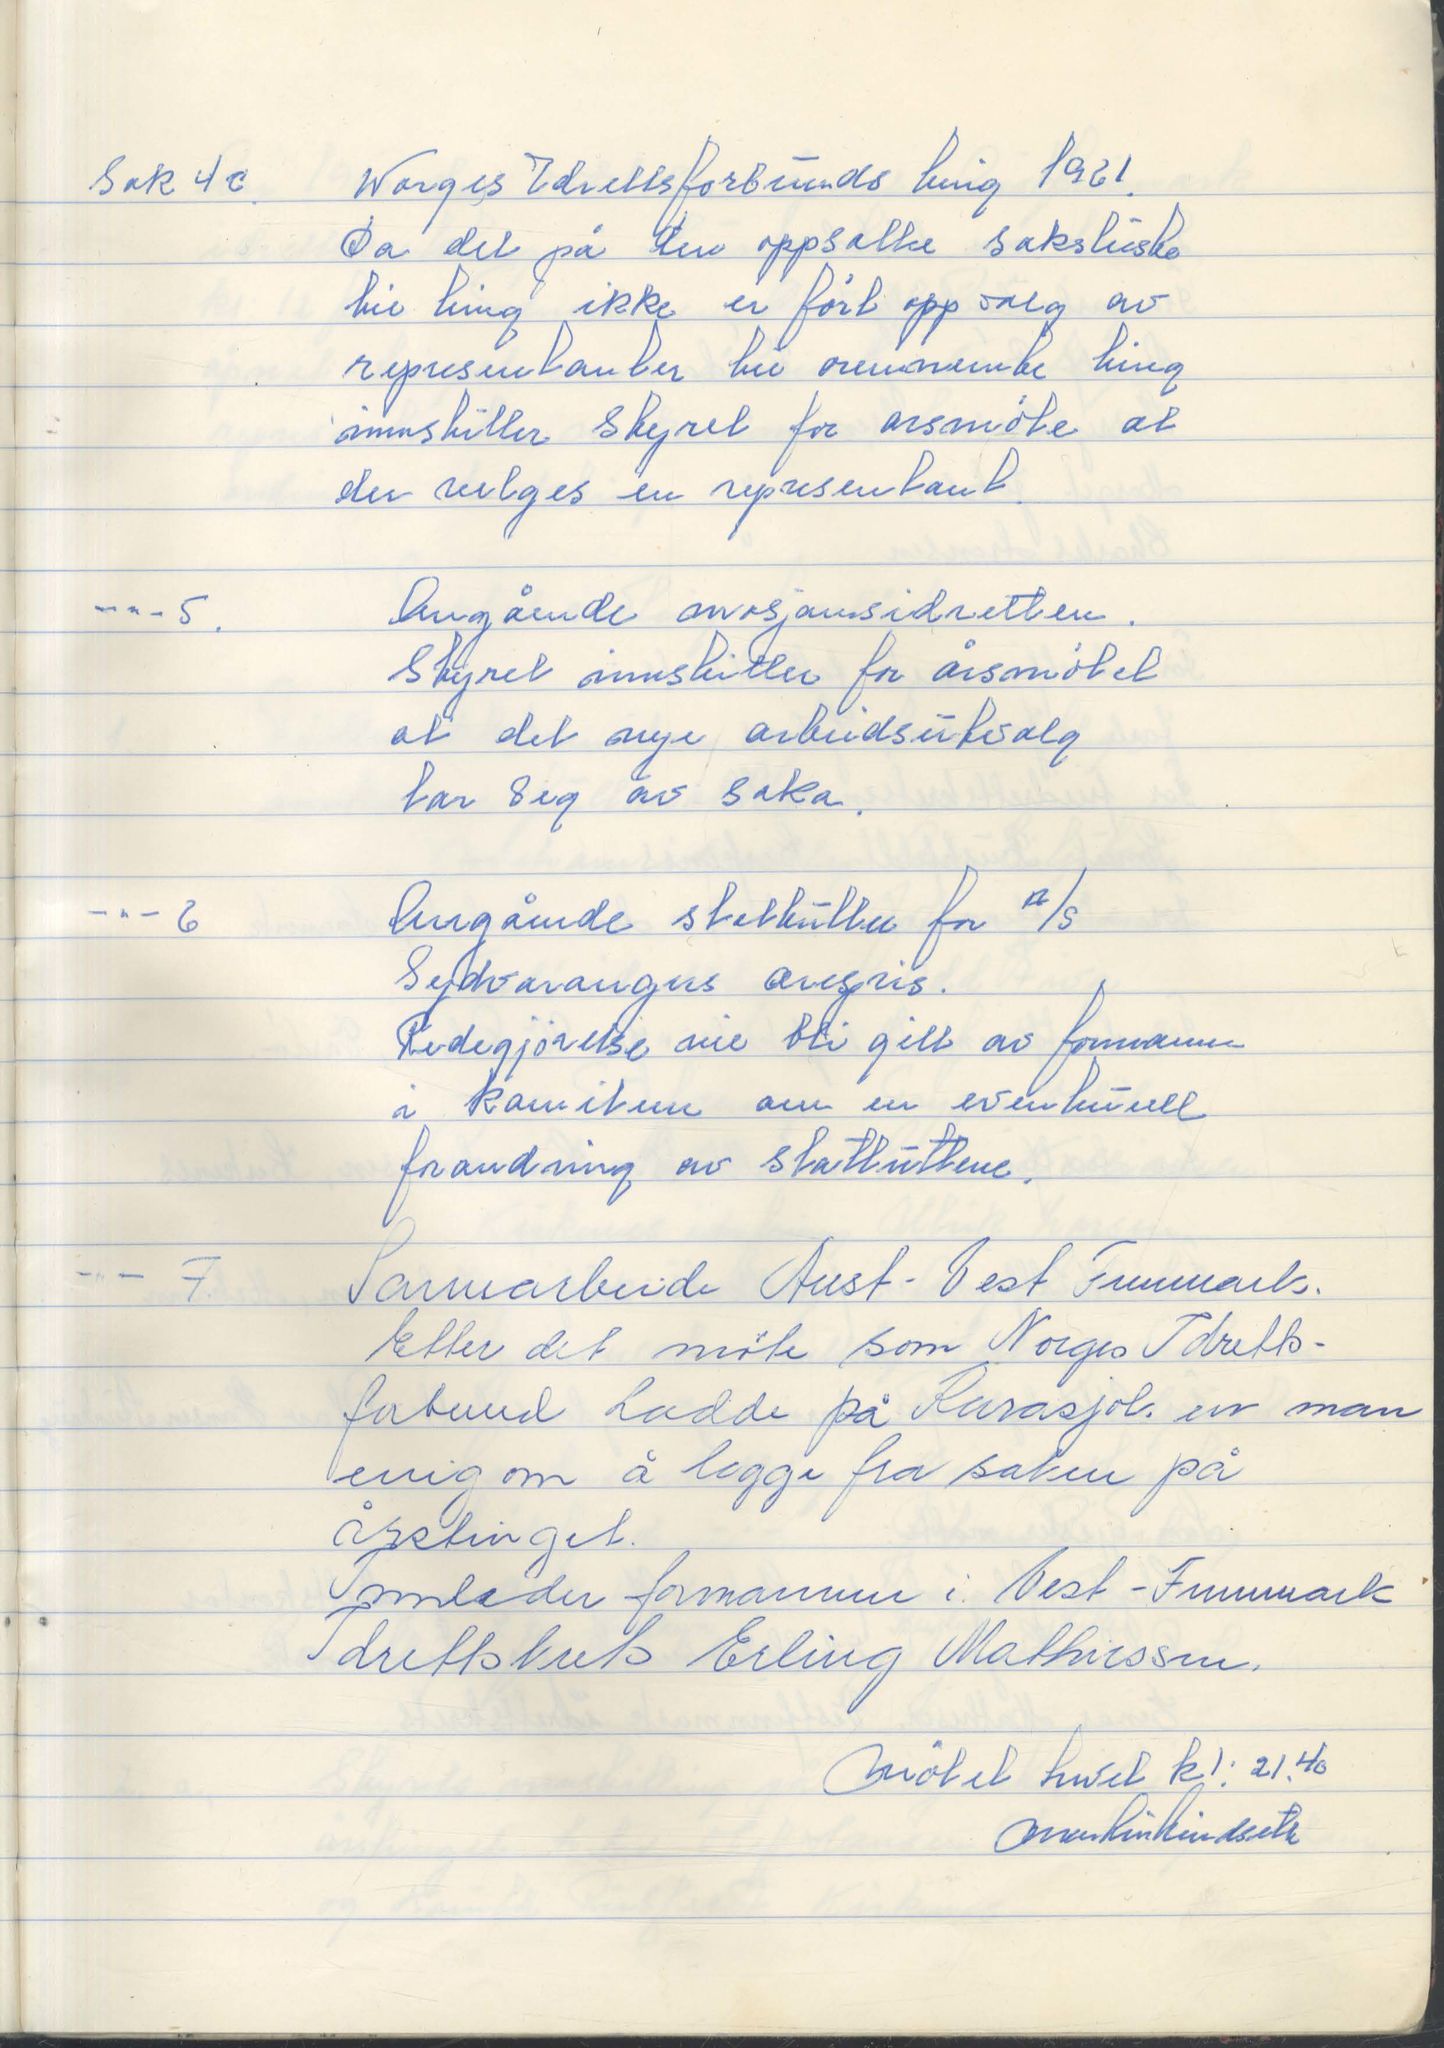 Sak 4c. Norges Idrettsforbunds ting 1961.
Da det på den oppsatte saksliste
til ting ikke er fört opp valg av
representanter til ovennemte ting
innstiller Styret for arsmöte at
der velges en representant.
---"-5. Angående mosjonsidretten.
Styret innstiller for årsmötet
at det nye arbeidsutvalg
tar seg av saka.
--"-6 Angående statutter for A/S
Sydvarangers ærespris.
Redegjörelse vil bli gitt av formann
i komiteen om en eventuell
forandring av stattuttene.
--"-- 7. Samarbeide Aust-Vest Finnmark.
Etter det möte som Norges Idretts-
forbund hadde på Karasjok. er man
enig om å legge fra saken på
årstinget.
Innleder formannen i Vest-Finnmark
Idrettskrets Erling Mathiessen.
Mötet hevet kl: 21.40